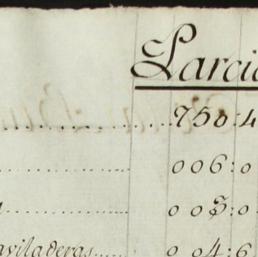 Parcia
750:4
006:0
005:0
aviladeras..... 004:6